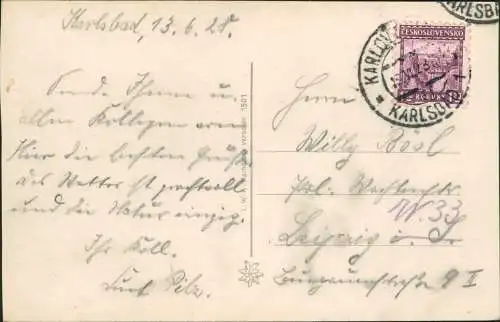 Karlsbad, 13.6.28.
Sende Ihnen u.
allen Kollegen von
Hier die besten Grüße
das Wetter ist prachtvoll
und die Natur einzig.
Ihr Koll.
Herrn
Willy
Pol. Wachtmstr.
W. 33
Leipzig
9 II
1501
ČESKOSLOVENSKO
KARLOVY
KARLSBAD
KARLSB